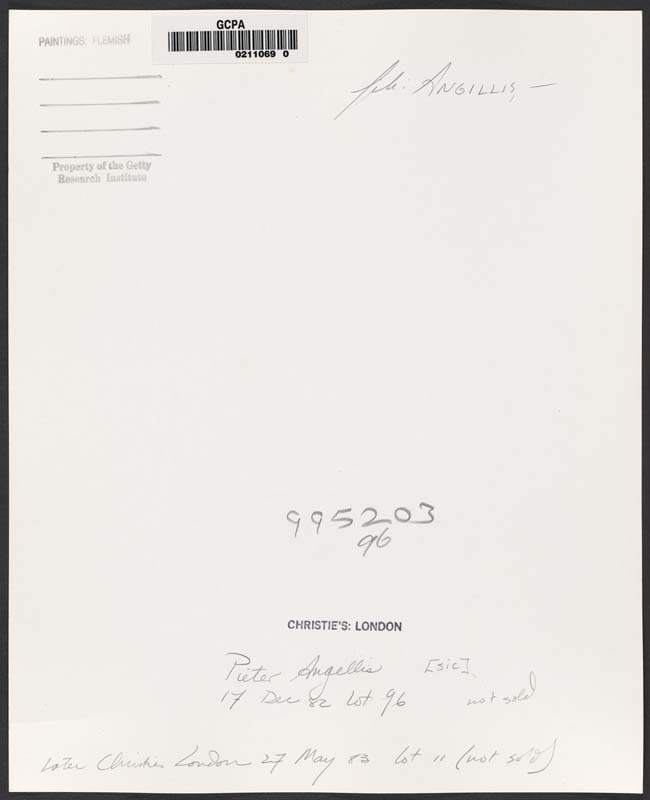 PAINTINGS: FLEMISH
GCPA
0211069 0
file: ANGILLIS, —
Property of the Getty
Research Institute
995203
96
CHRISTIE'S: LONDON
Pieter Angellis [sic]
17 Dec 82 Lot 96 not sold
Later Christies London 27 May 83 lot 11 (not sold)